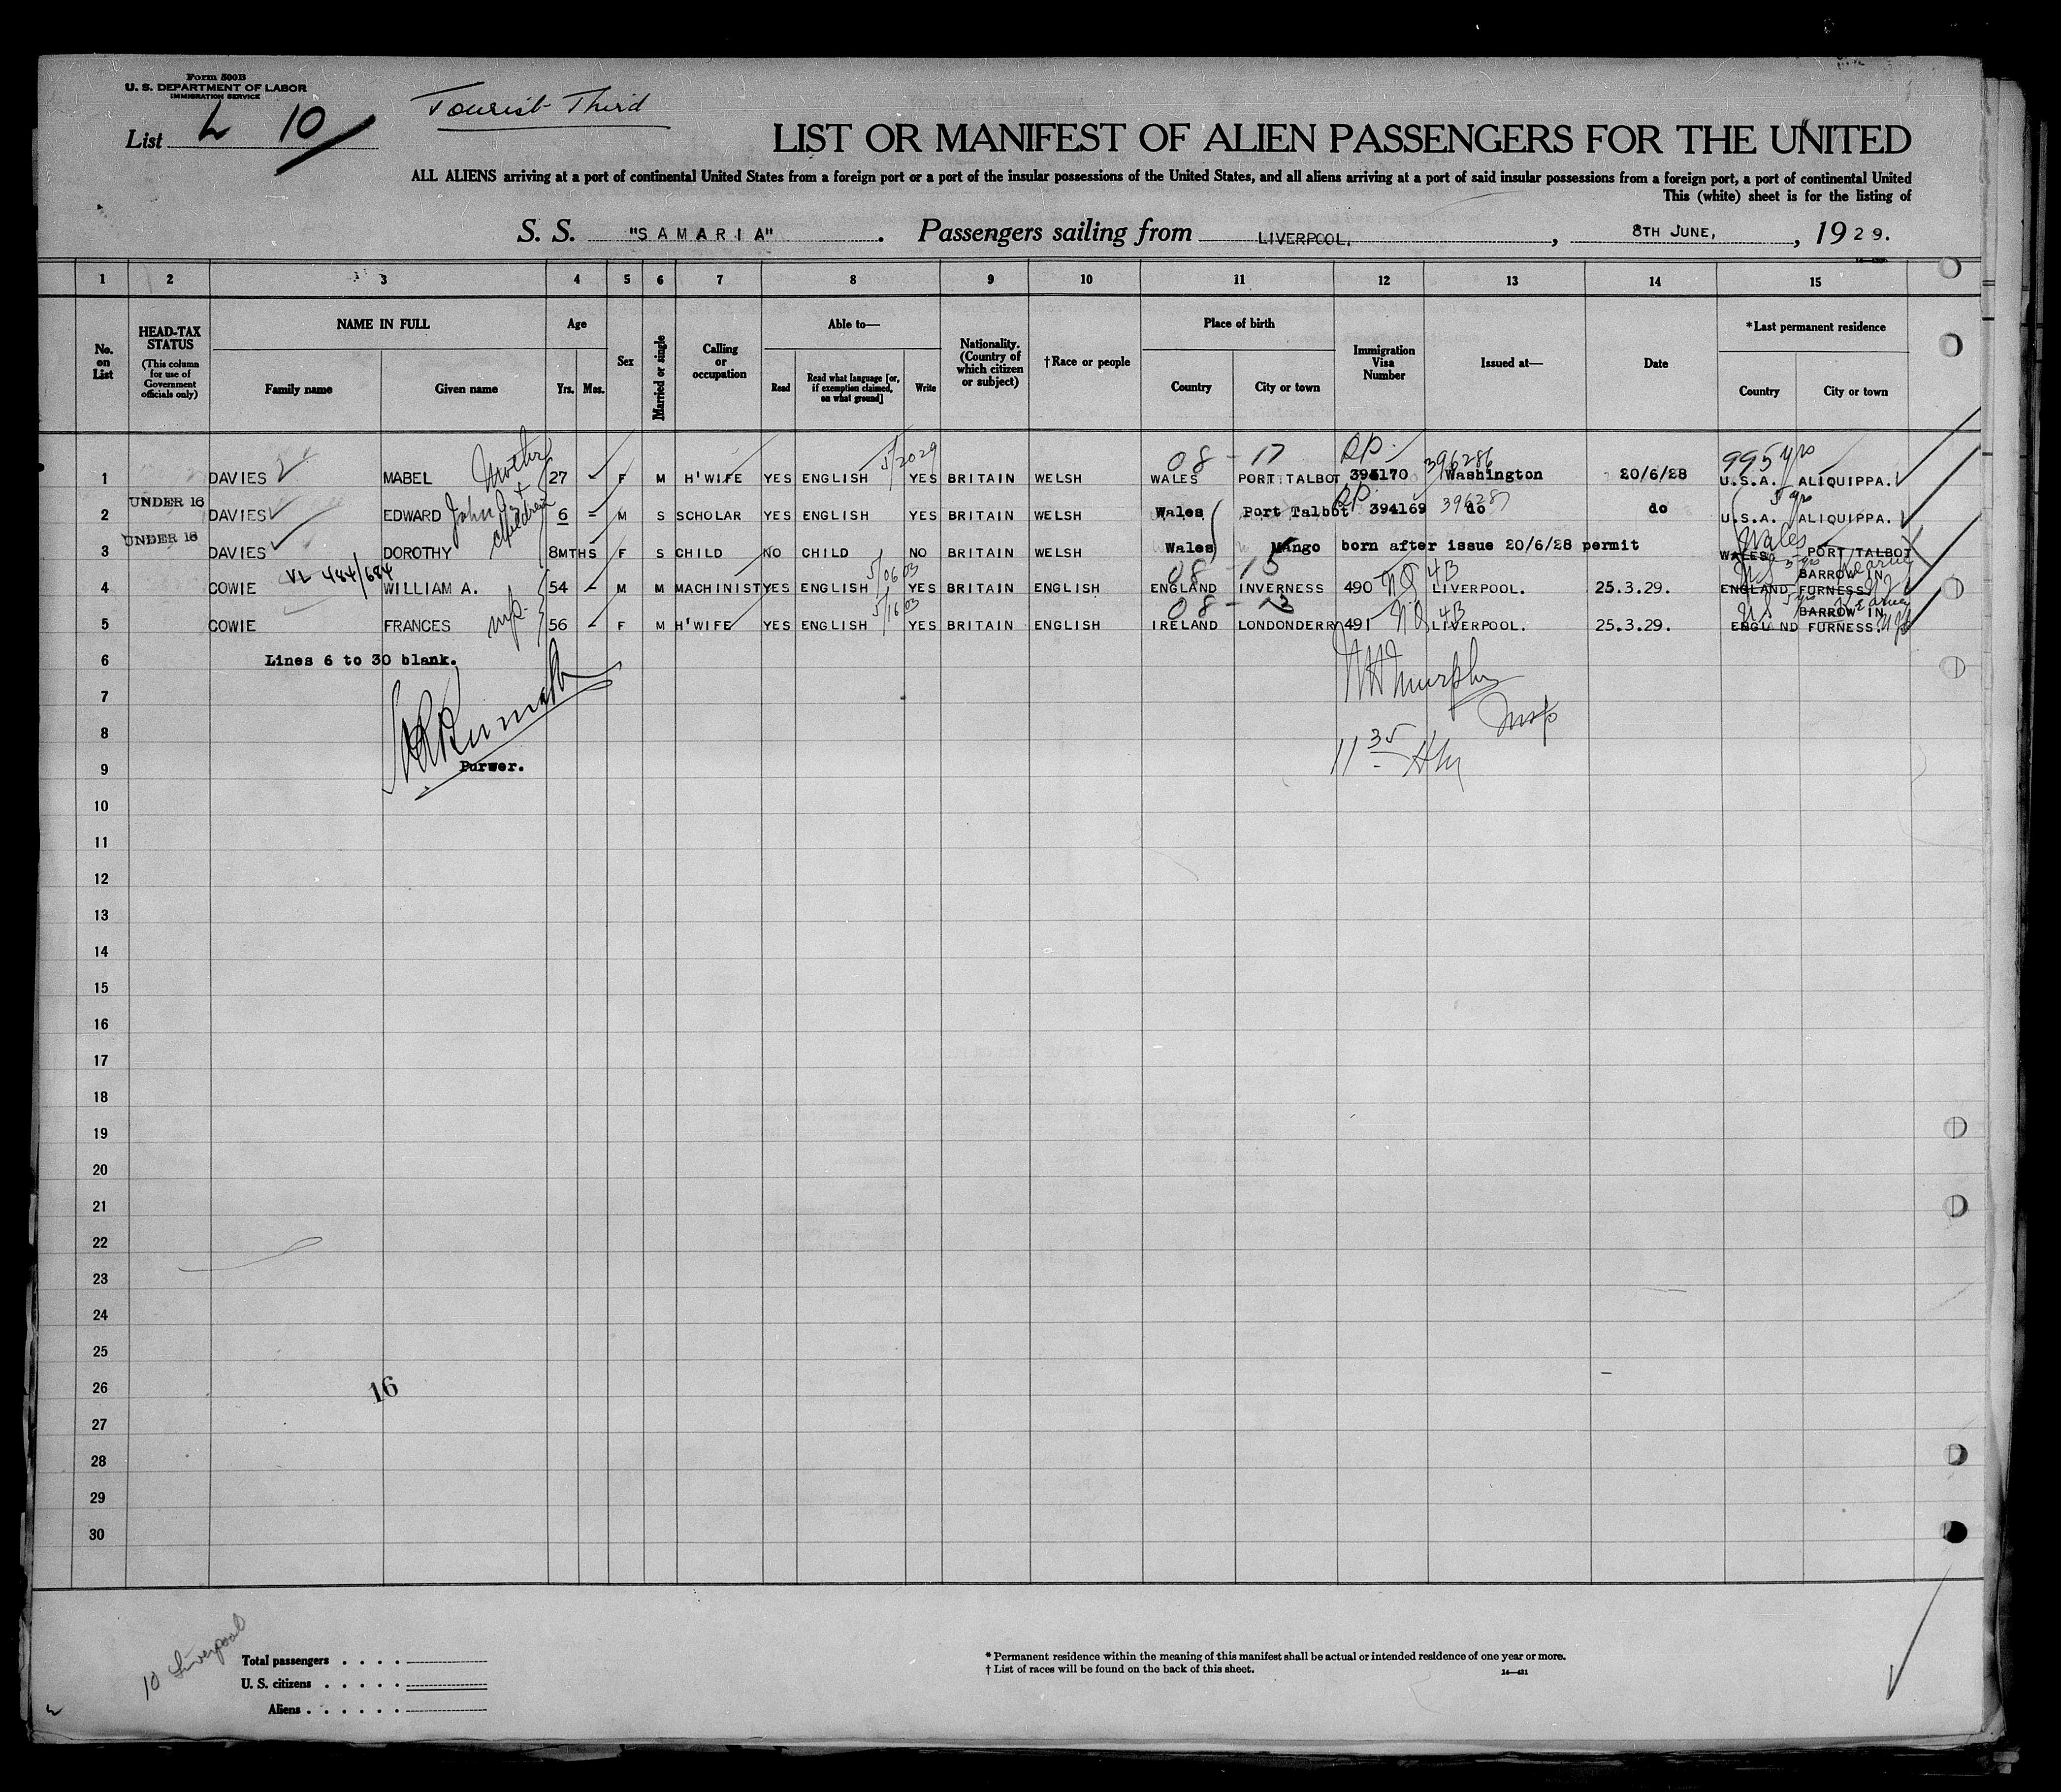 Form 500B
U. S. DEPARTMENT OF LABOR
IMMIGRATION SERVICE
List L 10
Tourist Third
LIST OR MANIFEST OF ALIEN PASSENGERS FOR THE UNITED
ALL ALIENS arriving at a port of continental United States from a foreign port or a port of the insular possessions of the United States, and all aliens arriving at a port of said insular possessions from a foreign port, a port of continental United
This (white) sheet is for the listing of
S. S. "SAMARIA". Passengers sailing from LIVERPOOL, , 8TH JUNE, , 1929.
1 2 3 4 5 6 7 8 9 10 11 12 13 14 15
No. on List
HEAD-TAX STATUS (This column for use of Government officials only)
NAME IN FULL
Family name Given name
Age
Yrs. Mos.
Sex
Married or single
Calling or occupation
Able to—
Read Read what language [or, if exemption claimed, on what ground] Write
Nationality. (Country of which citizen or subject)
†Race or people
Place of birth
Country City or town
Immigration Visa Number
Issued at—
Date
*Last permanent residence
Country City or town
Mother 5/2029 08 - 17 RP. 396286 995 yrs
1 DAVIES MABEL 27 - F M H'WIFE YES ENGLISH YES BRITAIN WELSH WALES PORT TALBOT 394170 Washington 20/6/28 U.S.A. ALIQUIPPA.
John & children RP. 396287 5 yrs
2 UNDER 16 DAVIES EDWARD 6 - M S SCHOLAR YES ENGLISH YES BRITAIN WELSH Wales Port Talbot 394169 do do U.S.A. ALIQUIPPA.
Wales
3 UNDER 16 DAVIES DOROTHY 8MTHS F S CHILD NO CHILD NO BRITAIN WELSH Wales Mango born after issue 20/6/28 permit WALES PORT TALBOT
VL 484/684 5/0603 08 - 15 NQ 4B
4 COWIE WILLIAM A. 54 - M M MACHINIST YES ENGLISH YES BRITAIN ENGLISH ENGLAND INVERNESS 490 LIVERPOOL. 25.3.29. ENGLAND BARROW IN FURNESS
wife 5/1603 08 - 13 NQ 4B
5 COWIE FRANCES 56 - F M H'WIFE YES ENGLISH YES BRITAIN ENGLISH IRELAND LONDONDERRY 491 LIVERPOOL. 25.3.29. ENGLAND BARROW IN FURNESS.
6 Lines 6 to 30 blank.
7 Murphy
8 Insp
11 35
9 Purser.
10
11
12
13
14
15
16
17
18
19
20
21
22
23
24
25
26 16
27
28
29
30
10 Liverpool
Total passengers . . . .
U. S. citizens . . . . .
Aliens . . . . . .
* Permanent residence within the meaning of this manifest shall be actual or intended residence of one year or more.
† List of races will be found on the back of this sheet. 14—431